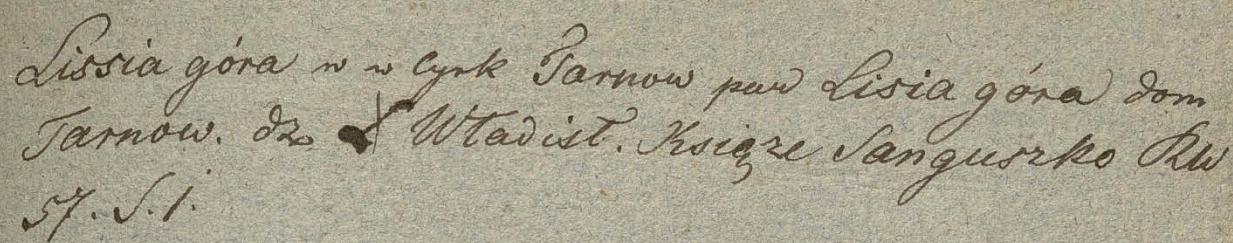 Lissia góra w w Cyrk Tarnow par Lisia góra dom
Tarnow. dz Władisł. Książe Sanguszko RW
57. S. 1.